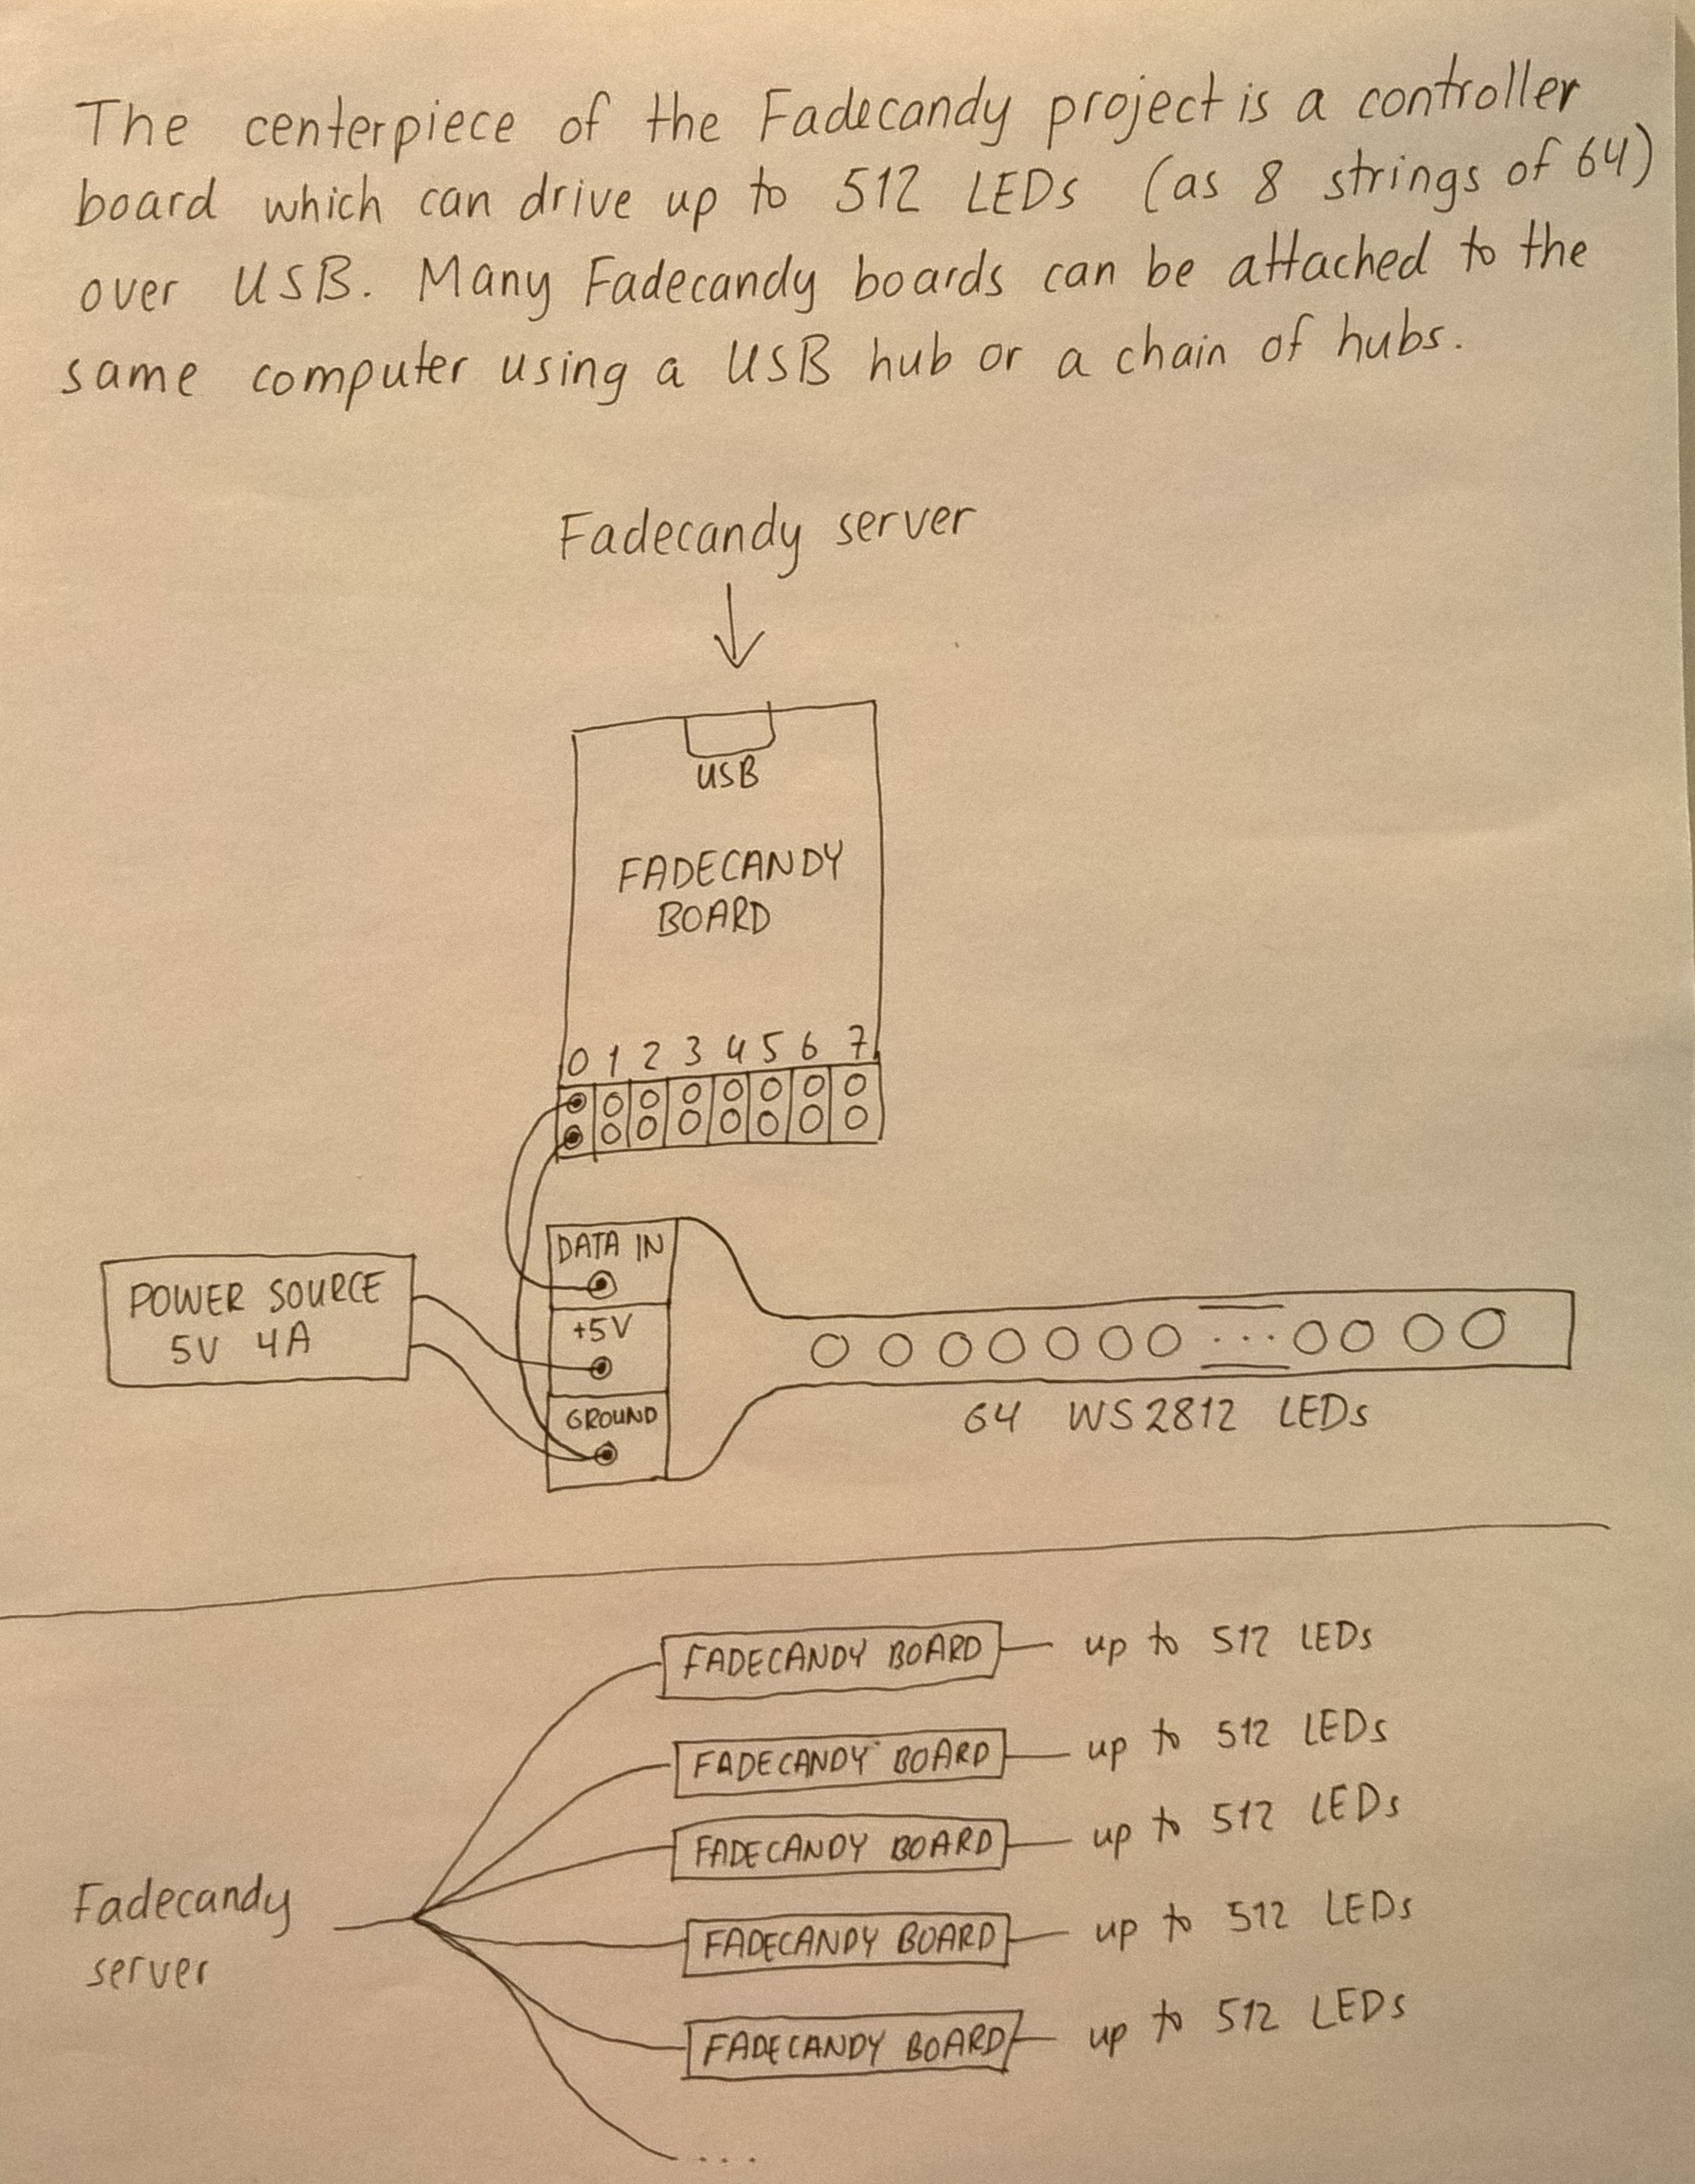 The centerpiece of the Fadecandy project is a controller
board which can drive up to 512 LEDs (as 8 strings of 64)
over USB. Many Fadecandy boards can be attached to the
same computer using a USB hub or a chain of hubs.
Fadecandy server
USB
FADECANDY
BOARD
0 1 2 3 4 5 6 7
DATA IN
POWER SOURCE
5V 4A
+5V
GROUND
...
64 WS2812 LEDs
FADECANDY BOARD up to 512 LEDs
FADECANDY BOARD up to 512 LEDs
FADECANDY BOARD up to 512 LEDs
Fadecandy
server
FADECANDY BOARD up to 512 LEDs
FADECANDY BOARD up to 512 LEDs
....